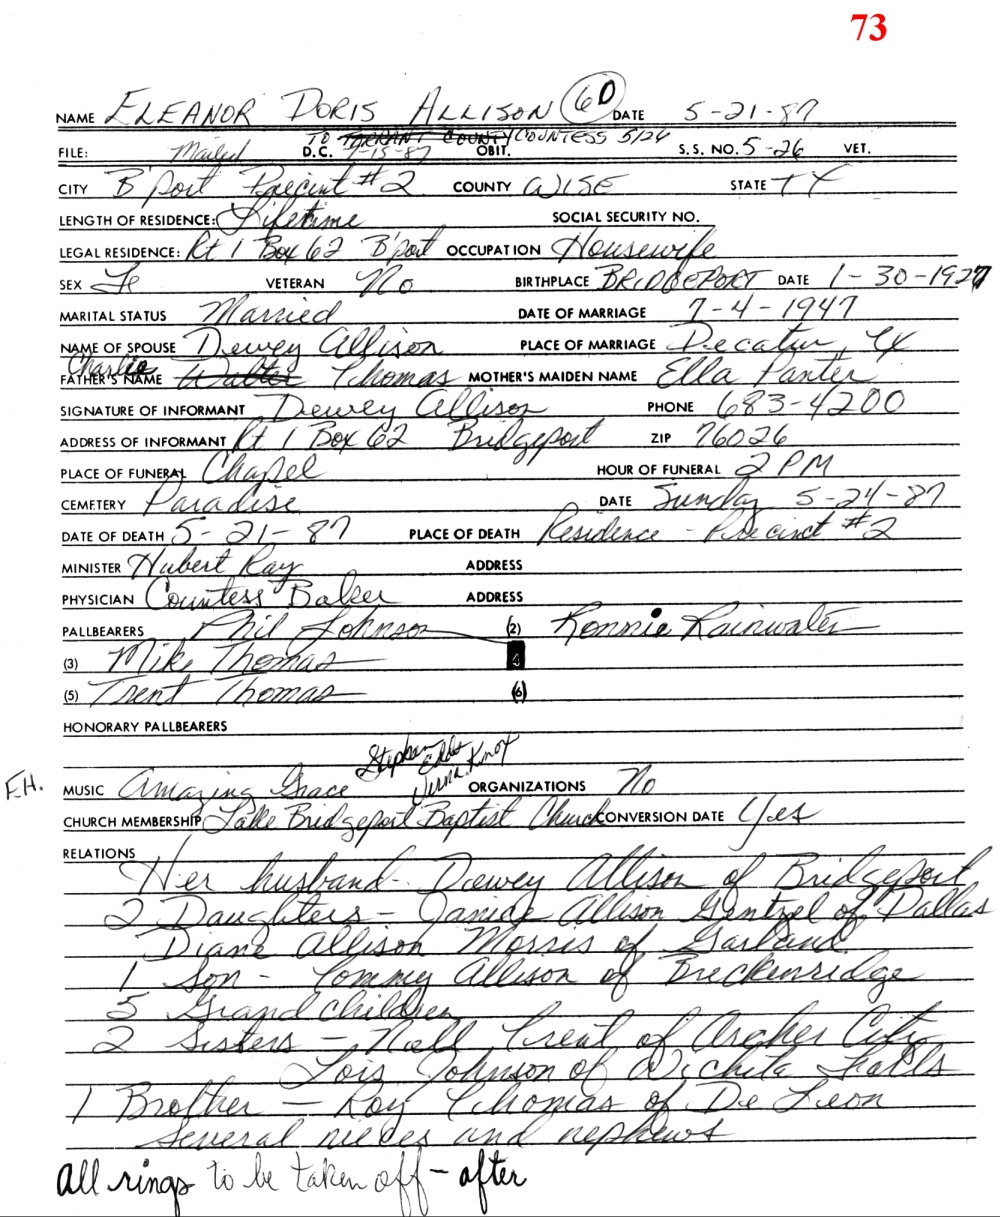 73
NAME ELEANOR DORIS ALLISON 60 DATE 5-21-87
TO TARRANT COUNTY COUNTESS 5/26
FILE: Mailed D.C. 7-15-87 OBIT. S.S. NO. 5-26 VET.
CITY B'port Precint #2 COUNTY WISE STATE TX
LENGTH OF RESIDENCE: Lifetime SOCIAL SECURITY NO.
LEGAL RESIDENCE: Rt 1 Box 62 B'port OCCUPATION Housewife
SEX Fe VETERAN No BIRTHPLACE BRIDGEPORT DATE 1-30-1927
MARITAL STATUS Married DATE OF MARRIAGE 7-4-1947
NAME OF SPOUSE Dewey Allison PLACE OF MARRIAGE Decatur, Tx
Charlie
FATHER'S NAME Walter Thomas MOTHER'S MAIDEN NAME Ella Panter
SIGNATURE OF INFORMANT Dewey Allison PHONE 683-4200
ADDRESS OF INFORMANT Rt 1 Box 62 Bridgeport ZIP 76026
PLACE OF FUNERAL Chapel HOUR OF FUNERAL 2 PM
CEMETERY Paradise DATE Sunday 5-24-87
DATE OF DEATH 5-21-87 PLACE OF DEATH Residence - Precinct #2
MINISTER Hubert Ray ADDRESS
PHYSICIAN Countess Baker ADDRESS
PALLBEARERS Phil Johnson (2) Ronnie Rainwater
(3) Mike Thomas
(5) Trent Thomas (6)
HONORARY PALLBEARERS
Stephen Edds
Verna Knox
F.H. MUSIC Amazing Grace ORGANIZATIONS No
CHURCH MEMBERSHIP Lake Bridgeport Baptist Church CONVERSION DATE Yes
RELATIONS
Her husband - Dewey Allison of Bridgeport
2 Daughters - Janice Allison Gentzel of Dallas
Diane Allison Morris of Garland
1 Son - Tommy Allison of Breckenridge
5 Grandchildren
2 Sisters - Nell Treat of Archer City
Lois Johnson of Wichita Falls
1 Brother - Roy Thomas of De Leon
Several nieces and nephews
All rings to be taken off - after